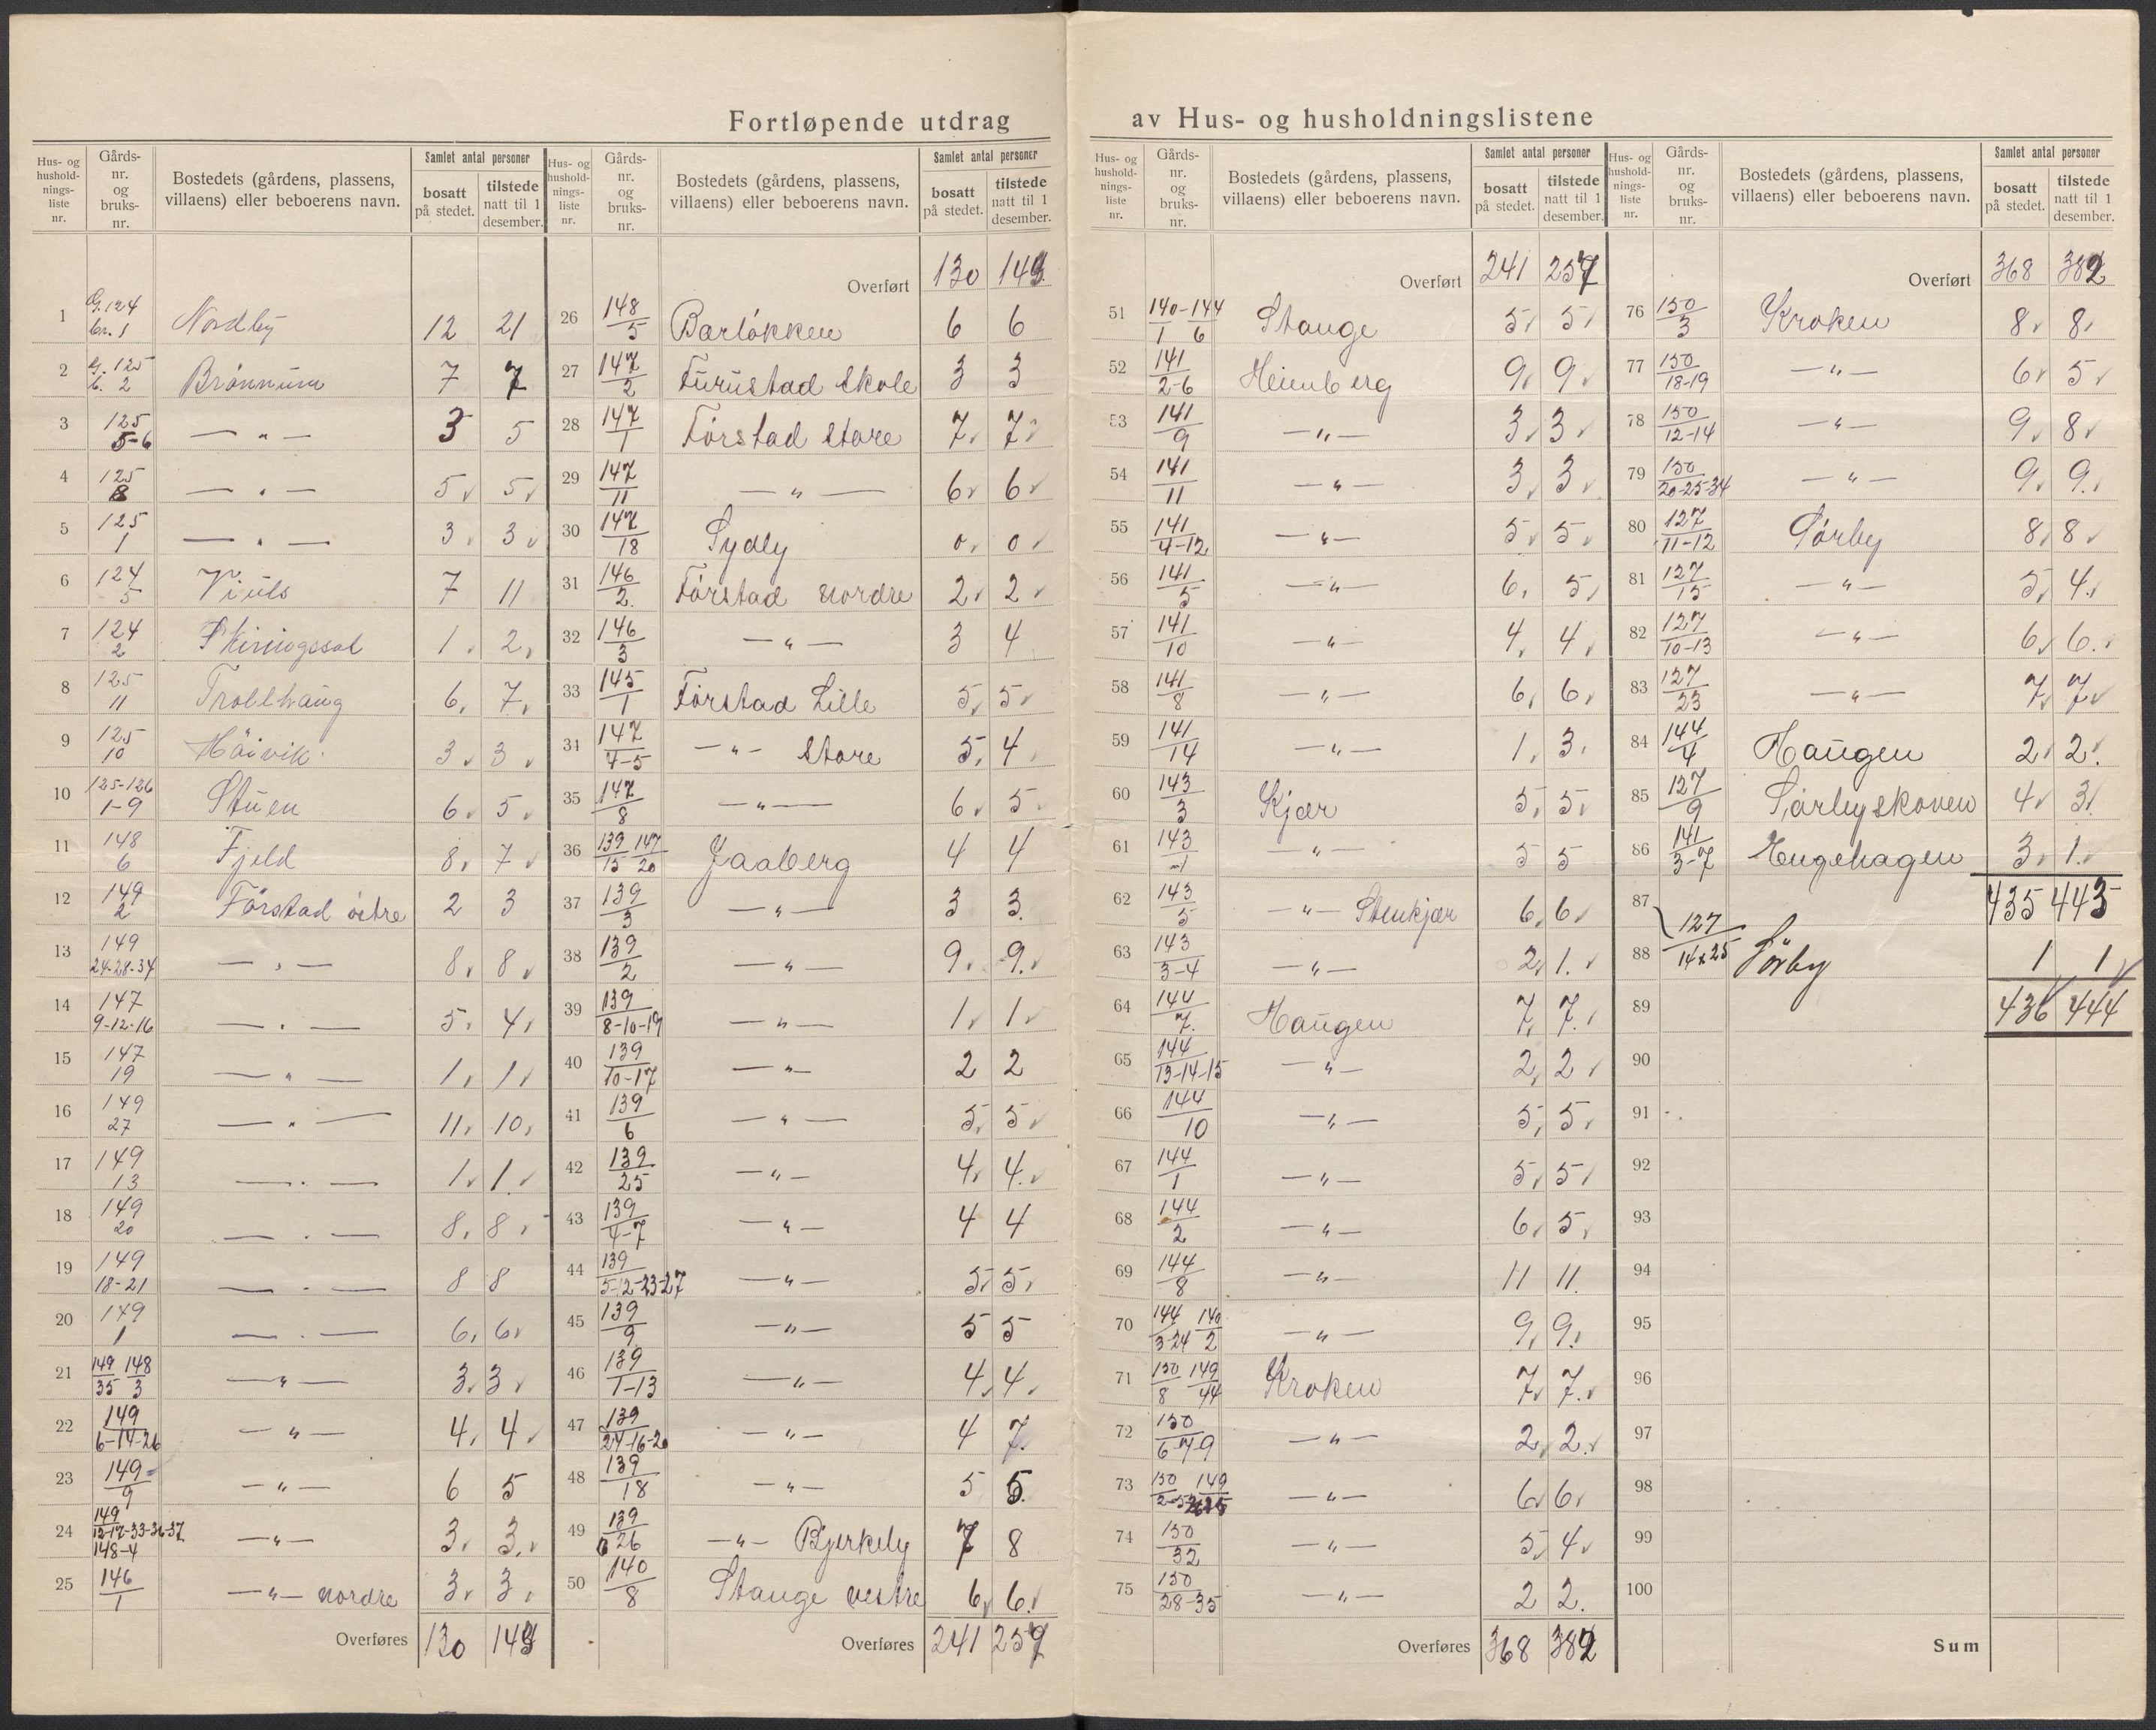 Fortløpende utdrag av Hus- og husholdningslistene
Hus- og husholdnings-liste nr. | Gårds-nr. og bruks-nr. | Bostedets (gårdens, plassens, villaens) eller beboerens navn. | Samlet antal personer | bosatt på stedet. | tilstede natt til 1 desember.
1 G. 124 br. 1 Nordby 12 21
2 G. 125 b. 2 Brönnum 7 7
3 125 5-6 — " — 3 5
4 125 8 — " — 5 5
5 125 1 — " — 3 3
6 124 5 Viuls 7 11
7 124 2 Skiringssal 1 2
8 125 11 Trollhaug 6 7
9 125 10 Häivik 3 3
10 125-126 1-9 Stuen 6 5
11 148 6 Fjeld 8 7
12 149 2 Förstad östre 2 3
13 149 24-28-34 — " — 8 8
14 147 9-12-16 — " — 5 4
15 147 19 — " — 1 1
16 149 27 — " — 11 10
17 149 13 — " — 1 1
18 149 20 — " — 8 8
19 149 18-21 — " — 8 8
20 149 1 — " — 6 6
21 149/35 148/3 — " — 3 3
22 149/6-14-26 — " — 4 4
23 149/9 — " — 6 5
24 149/12-17-33-36-37 148-4 — " — 3 3
25 146/1 — " — nordre 3 3
Overføres 130 143
Hus- og husholdnings-liste nr. | Gårds-nr. og bruks-nr. | Bostedets (gårdens, plassens, villaens) eller beboerens navn. | Samlet antal personer | bosatt på stedet. | tilstede natt til 1 desember.
Overført 130 143
26 148/5 Barlökken 6 6
27 147/2 Furustad Skole 3 3
28 147/1 Förstad Store 7 7
29 147/11 — " — 6 6
30 147/18 Sydly 0 0
31 146/2 Förstad nordre 2 2
32 146/3 — " — 3 4
33 145/1 Förstad Lille 5 5
34 147/4-5 — " — Store 5 4
35 147/8 — " — 6 5
36 139/15 147/20 Jaaberg 4 4
37 139/3 — " — 3 3
38 139/2 — " — 9 9
39 139/8-10-19 — " — 1 1
40 139/10-17 — " — 2 2
41 139/6 — " — 5 5
42 139/25 — " — 4 4
43 139/4-7 — " — 4 4
44 139/5-12-23-27 — " — 5 5
45 139/9 — " — 5 5
46 139/1-13 — " — 4 4
47 139/24-16-20 — " — 4 7
48 139/18 — " — 5 5
49 139/26 — " — Bjerkely 7 8
50 140/8 Stange vestre 6 6
Overføres 241 257
Hus- og husholdnings-liste nr. | Gårds-nr. og bruks-nr. | Bostedets (gårdens, plassens, villaens) eller beboerens navn. | Samlet antal personer | bosatt på stedet. | tilstede natt til 1 desember.
Overført 241 257
51 140-144/1 6 Stange 5 5
52 141/2-6 Heienberg 9 9
53 141/9 — " — 3 3
54 141/11 — " — 3 3
55 141/4-12 — " — 5 5
56 141/5 — " — 6 5
57 141/10 — " — 4 4
58 141/8 — " — 6 6
59 141/14 — " — 1 3
60 143/3 Kjær 5 5
61 143/1 — " — 5 5
62 143/5 — " — Stenkjær 6 6
63 143/3-4 — " — 2 1
64 144/7 Haugen 7 7
65 144/13-14-15 — " — 2 2
66 144/10 — " — 5 5
67 144/1 — " — 5 5
68 144/2 — " — 6 5
69 144/8 — " — 11 11
70 144/3-24 140/2 — " — 9 9
71 150/8 149/44 Kroken 7 7
72 150/6-7-9 — " — 2 2
73 150 149 — " — 6 6
74 150/32 — " — 5 4
75 150/28-35 — " — 2 2
Overføres 368 382
Hus- og husholdnings-liste nr. | Gårds-nr. og bruks-nr. | Bostedets (gårdens, plassens, villaens) eller beboerens navn. | Samlet antal personer | bosatt på stedet. | tilstede natt til 1 desember.
Overført 368 382
76 150/3 Kroken 8 8
77 150/18-19 — " — 6 5
78 150/12-14 — " — 9 8
79 150/20-25-34 — " — 9 9
80 127/11-12 Sörby 8 8
81 127/15 — " — 5 4
82 127/10-13 — " — 6 6
83 127/23 — " — 7 7
84 144/4 Haugen 2 2
85 127/9 Sörbyskoven 4 3
86 141/3-7 Engehagen 3 1
87 435 443
88 127/14x25 Sörby 1 1
89 436 444
90
91
92
93
94
95
96
97
98
99
100
Sum